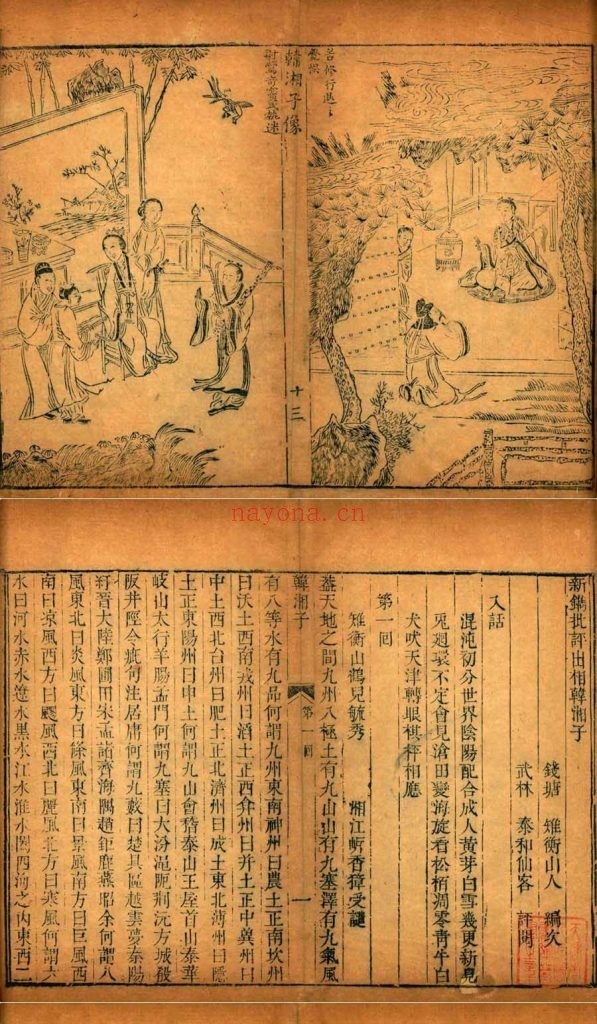 韓湘子像
十三
nayona.cn
新鐫批評出相韓湘子
錢塘 雉衡山人 編次
武林 泰和仙客 評閱
入話
混沌初分世界陰陽配合成人黃芽白雪幾更新見
兎廻環不定會見滄田變海旋看松梢凋零青牛白
犬吠天津轉眼棋枰相應
第一回
雉衡山鶴兒毓秀 湘江岸香獐受譴
蓋天地之間九州八極土有九山山有九塞澤有九氣風
韓湘子 第一回 一
有八等水有九品何謂九州東南神州曰農土正南坎州
曰沃土西南戎州曰滔土正西弇州曰并土正中冀州曰
中土西北台州曰肥土正北濟州曰成土東北薄州曰隱
土正東陽州曰申土何謂九山會稽泰山王屋首山泰華
岐山太行羊腸孟門何謂九塞曰大汾澠阨荆沅方城殽
阪井陘令疵句注居庸何謂九藪曰楚具區越雲夢秦陽
紆晉大陸鄭圃田宋孟諸齊海隅趙鉅鹿燕昭余何謂八
風東北曰炎風東方曰絛風東南曰景風南方曰巨風西
南曰凉風西方曰飂風西北曰麗風北方曰寒風何謂六
水曰河水赤水遼水黑水江水淮水闔四海之內東西二